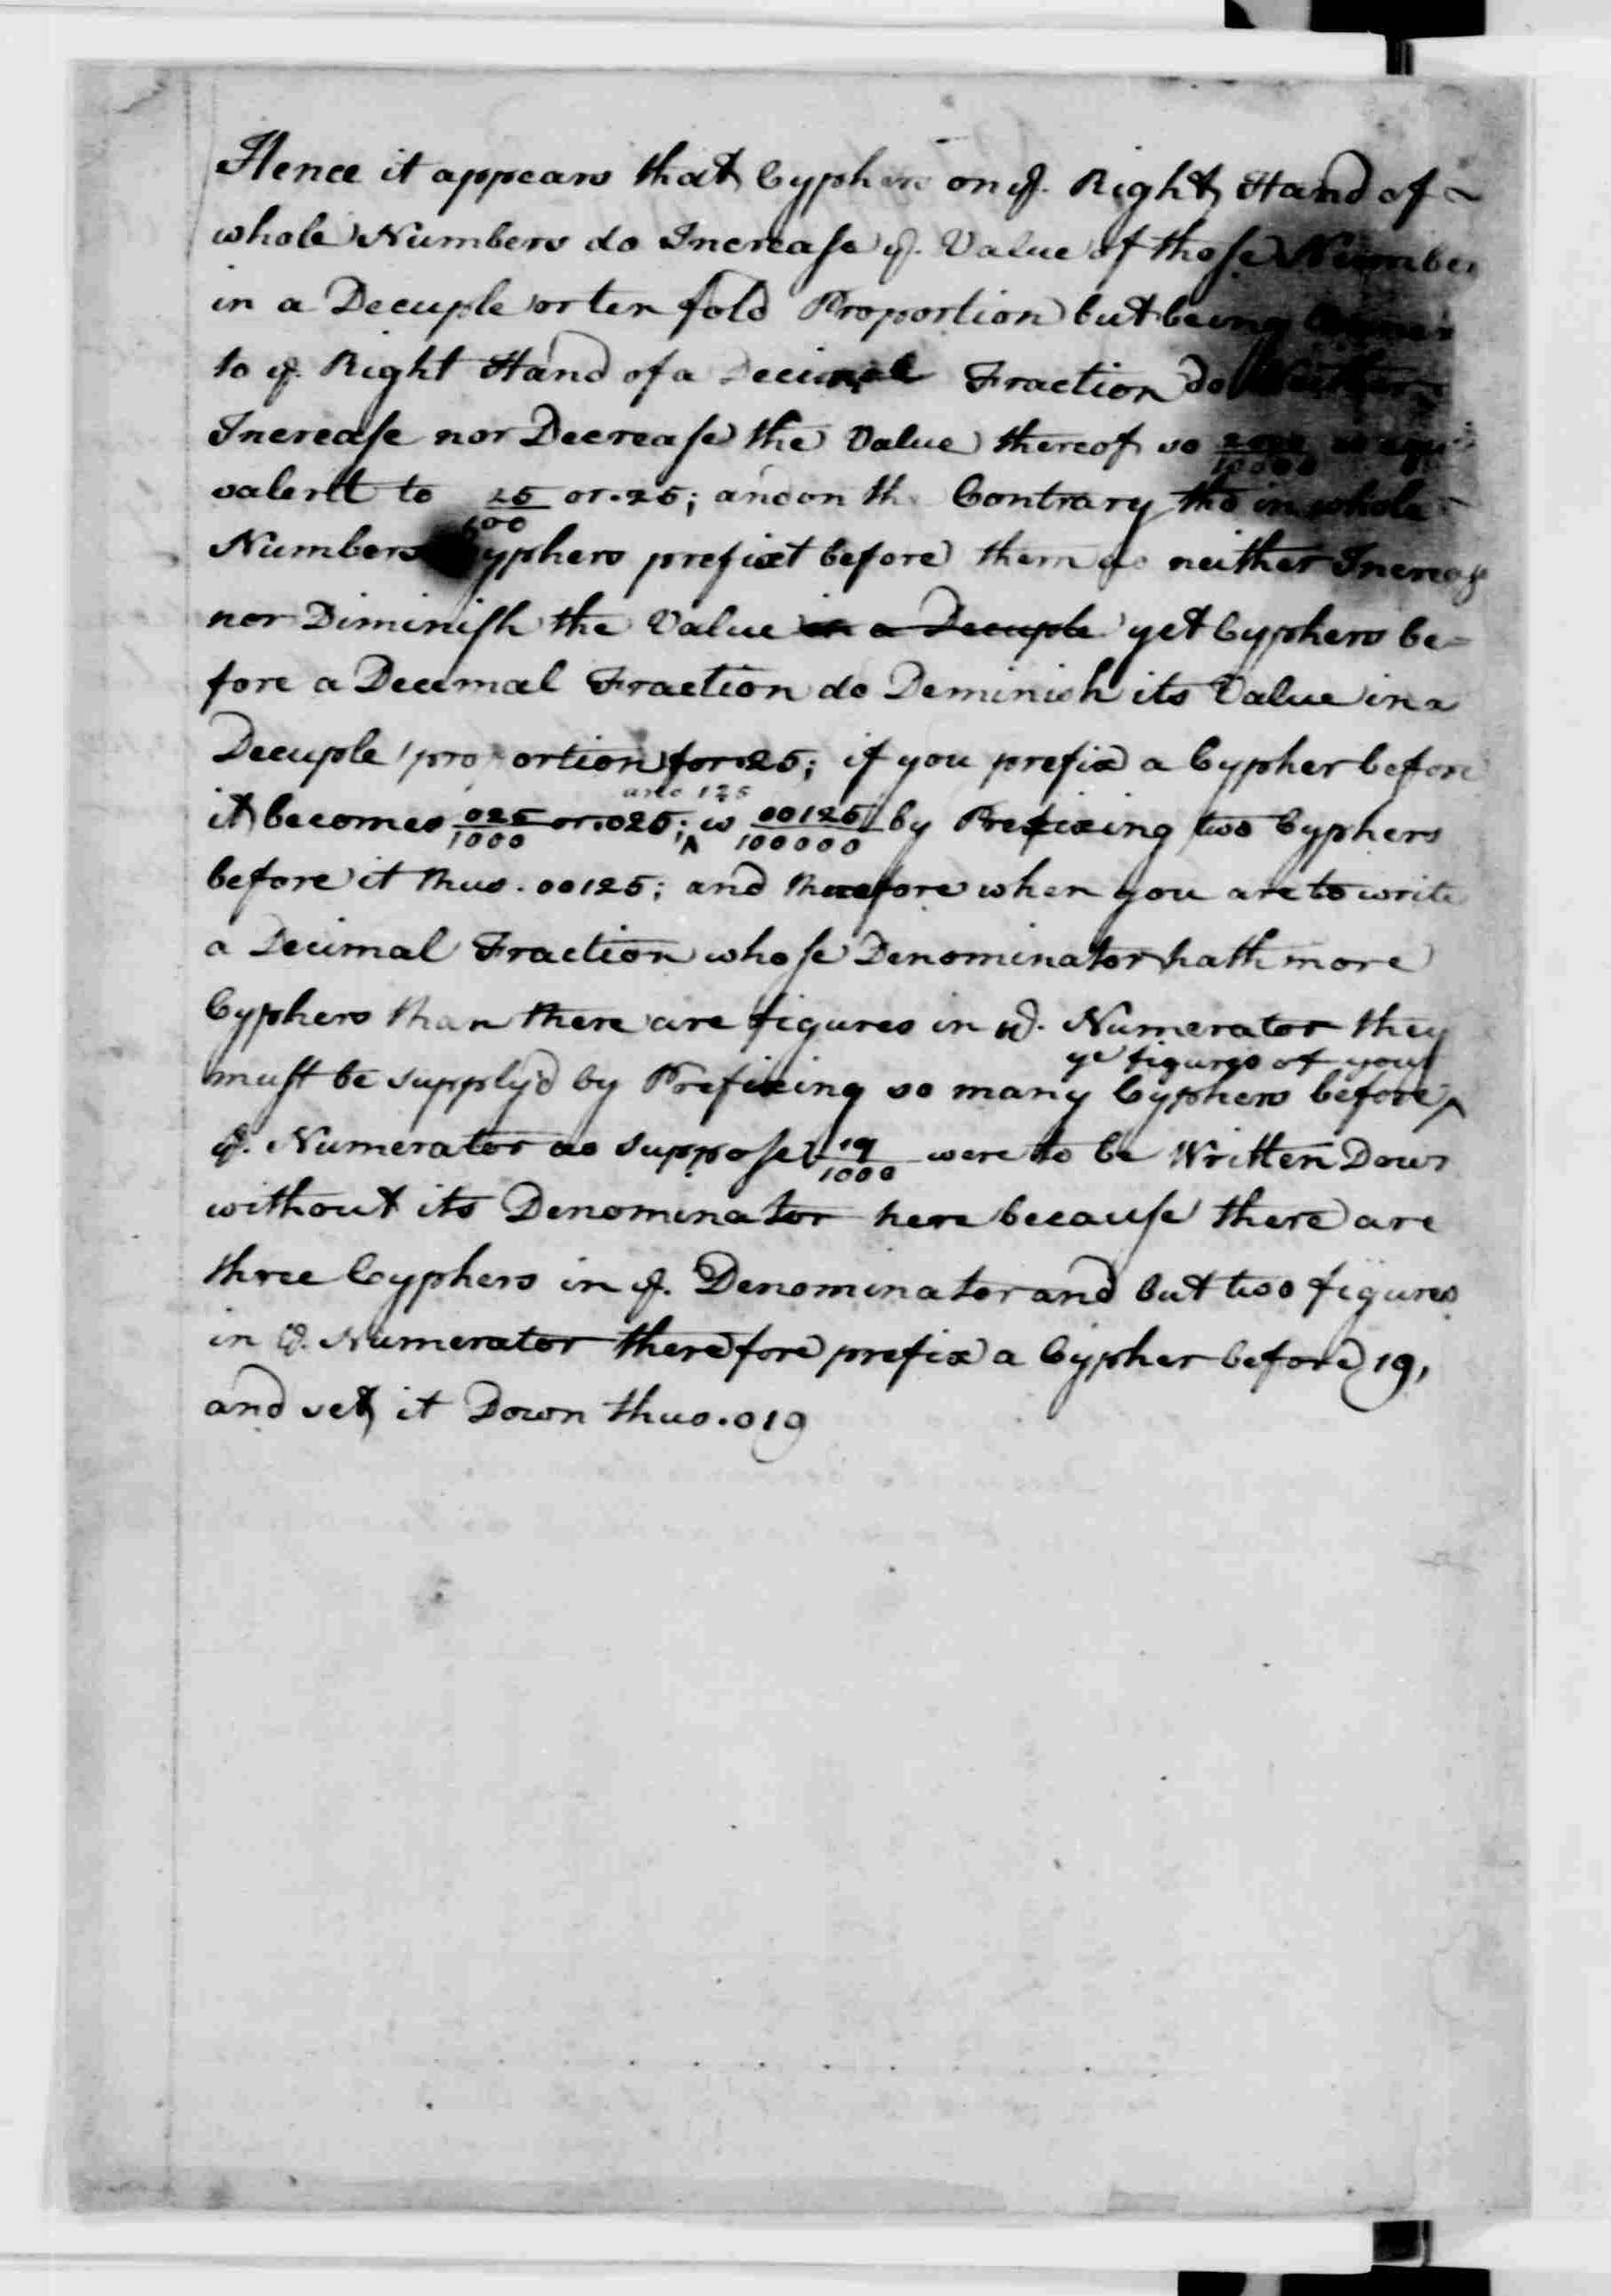 Hence it appears that Cyphers on ye. Right Hand of
whole Numbers do Increase ye. Value of those Number
in a Decuple or ten fold Proportion but being
to ye. Right Hand of a Decimal Fraction do Neither
Increase nor Decrease the Value thereof so 2500/10000 is equi
valent to 25/100 or .25; and on the Contrary tho in whole
Numbers Cyphers prefixt before them do neither Increase
nor Diminish the Value in a Decuple yet Cyphers be=
fore a Decimal Fraction do Deminish its Value in a
Decuple proportion for .25; if you prefix a Cypher before
and 125
it becomes 025/1000 or .025; ^ is 00125/100000 by Prefixing two Cyphers
before it thus .00125; and therefore when you are to write
a Decimal Fraction whose Denominator hath more
Cyphers than there are figures in ye. Numerator they
ye figures of your
must be supply'd by Prefixing so many Cyphers before ^
ye. Numerator as suppose 19/1000 were to be Written Down
without its Denominator here because there are
three Cyphers in ye. Denominator and but two figures
in ye. Numerator therefore prefix a Cypher before 19,
and set it Down thus .019